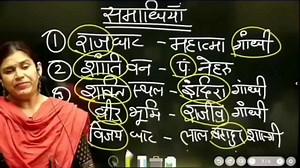 समाधियाँ
① राजघाट - महात्मा गाँधी
② शांति वन - पं नेहरु
शक्ति स्थल - इंदिरा गांधी
वीर भूमि - राजीव गाँधी
विजय घाट - लाल बहादुर शास्त्री